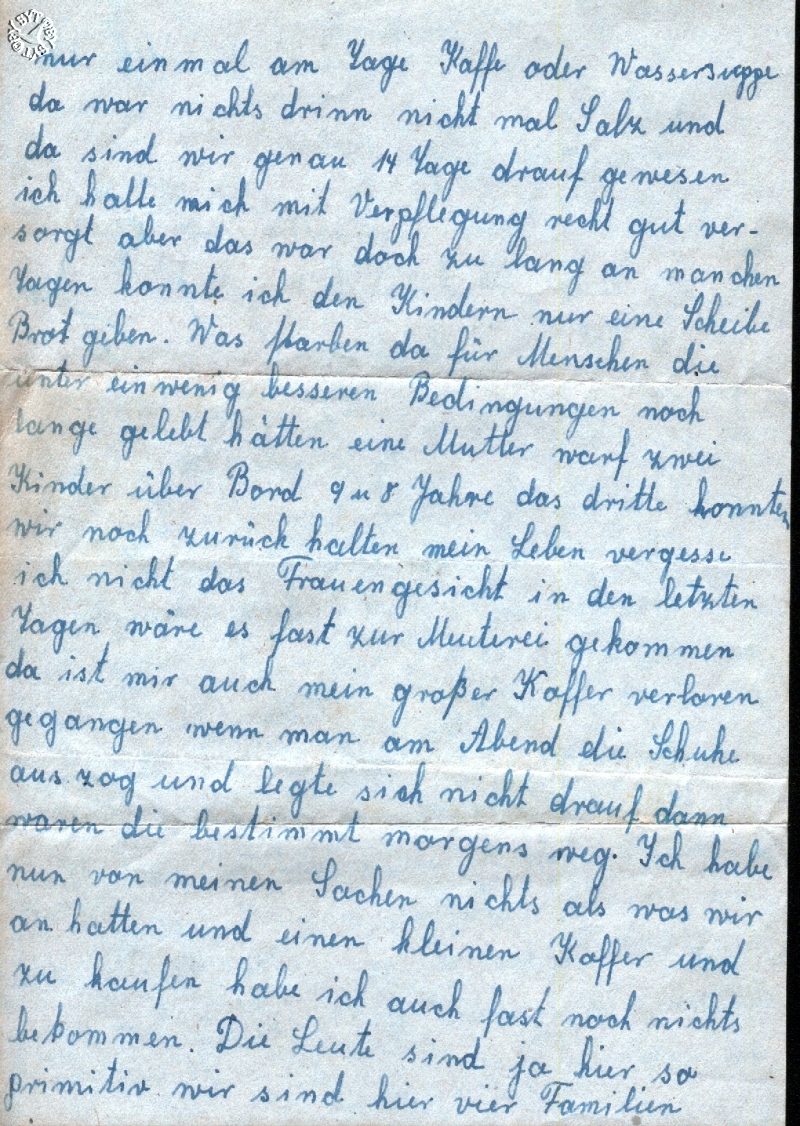 nur einmal am Tage Kaffe oder Wassersuppe
da war nichts drinn nicht mal Salz und
da sind wir genau 14 Tage drauf gewesen
ich hatte mich mit Verpflegung recht gut ver-
sorgt aber das war doch zu lang an manchen
Tagen konnte ich den Kindern nur eine Scheibe
Brot geben. Was starben da für Menschen die
unter einwenig besseren Bedingungen noch
lange gelebt hätten eine Mutter warf zwei
Kinder über Bord 9 u 8 Jahre das dritte konnten
wir noch zurück halten mein Leben vergesse
ich nicht das Frauengesicht in den letzten
Tagen wäre es fast zur Meuterei gekommen
da ist mir auch mein großer Koffer verloren
gegangen wenn man am Abend die Schuhe
aus zog und legte sich nicht drauf dann
waren die bestimmt morgens weg. Ich habe
nun von meinen Sachen nichts als was wir
an hatten und einen kleinen Koffer und
zu kaufen habe ich auch fast noch nichts
bekommen. Die Leute sind ja hier so
primitiv wir sind hier vier Familien